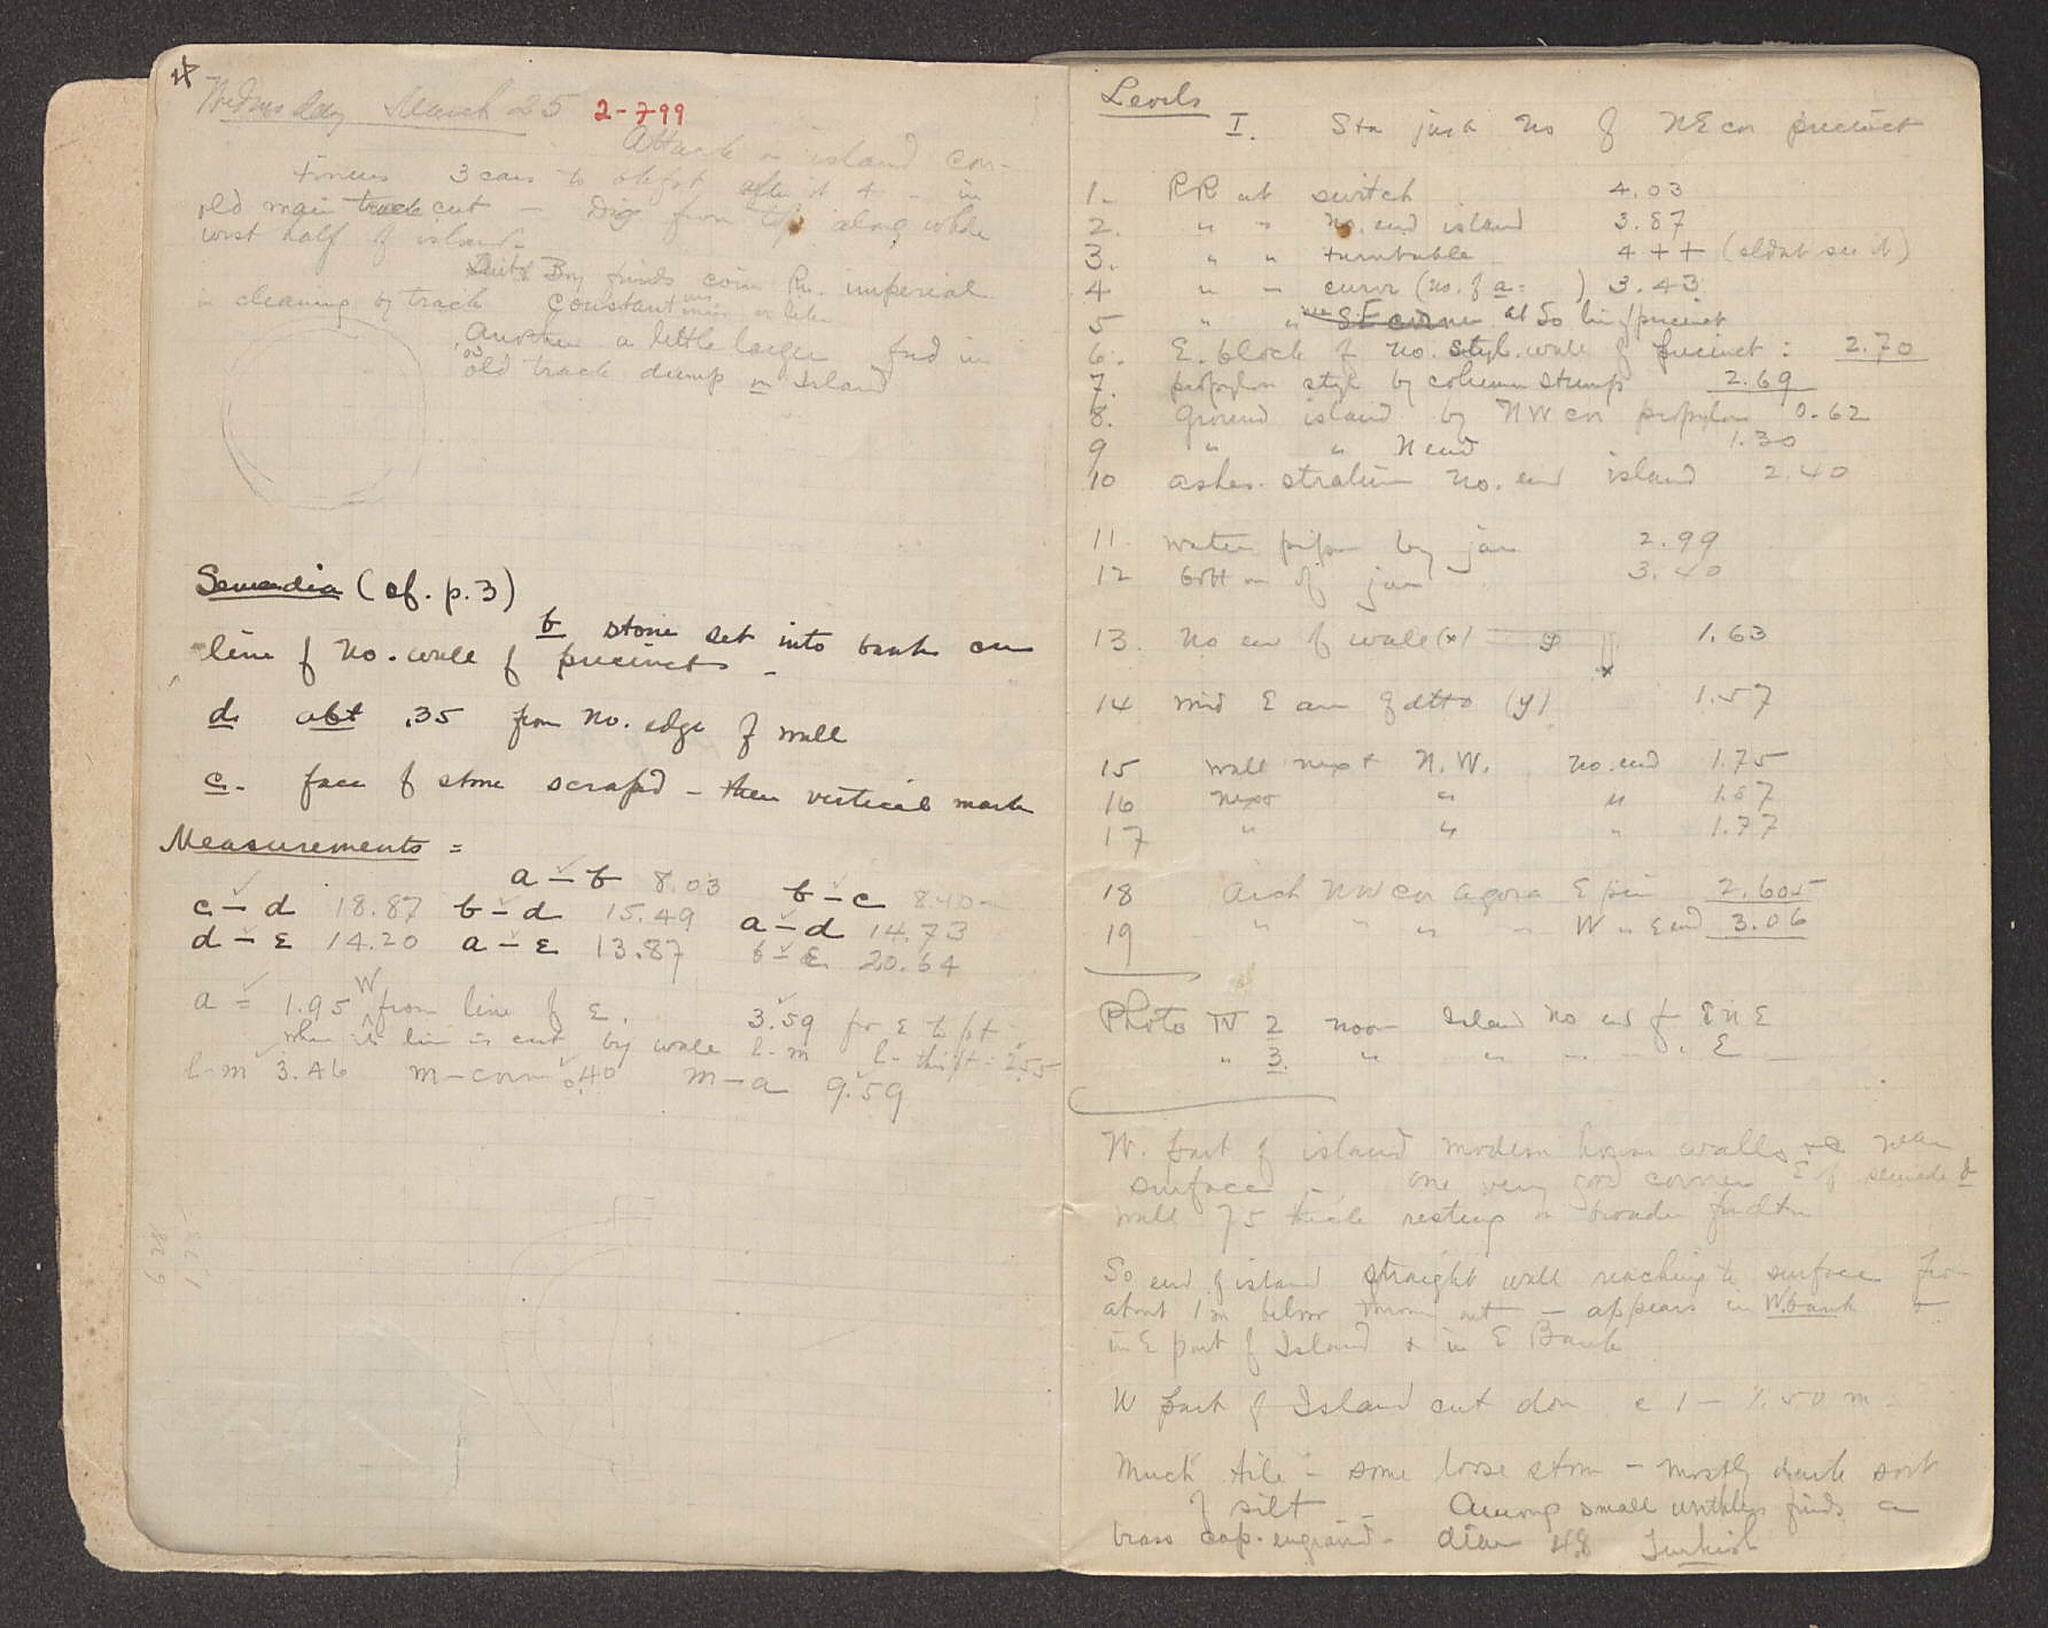 4
Wednesday March 25 2-799
Attack on island con-
tinues 3 cars to start after it 4 - in
old main track cut - Dig from top along whole
west half of island -
Boy finds coin Rn. imperial
in cleaning by track Constant or later
Another a little larger fnd in
old track dump on Island
Semandia (cf. p. 3)
b stone set into bank on
line of No. wall of precinct -
d. abt .35 from no. edge of wall
c. face of stone scraped - then vertical mark
Measurements =
a - b 8.03 b - c 8.40
c - d 18.87 b - d 15.49 a - d 14.73
d - E 14.20 a - E 13.87 b - E 20.64
a = 1.95 W from line of E. 3.59 for E to pt
when its line is cut by wall l-m l - this pt = 2.55
l-m 3.46 m - corn 0.40 m - a 9.59
Levels
I. Sta just No of NE cor precinct
1- RR at switch 4.03
2. " " no. end island 3.87
3. " " turntable 4 ++ (didnt see it)
4 " " curve (no. of a = ) 3.43
5 " " SE corner at So line precinct
6. E. block of no. styl. wall of precinct : 2.70
7. propylon styl by column stump 2.69
8. Ground island by NW cor propylon 0.62
9 " " N end 1.30
10 ashes. stratum no. end island 2.40
11. water pipe by jar 2.99
12 bottom of jar 3.40
13. no end of wall (x) y x 1.63
14 mid E arm of ditto (y) 1.57
15 wall next N.W. no. end 1.75
16 next " " 1.87
17 " " " 1.77
18 Arch NW cor agora E pier 2.605
19 " " " " W " E end 3.06
Photo IV 2 noon Island No end fr ENE
" 3. " " " " E
W. part of island modern house walls near
surface - one very good corner E of
wall 75 thick resting on broader fndtn
So end of island straight wall reaching to surface from
about 1 m below cut - appears in W. bank +
in E part of Island + in E Bank
W part of Island cut down c 1 - 1.50 m -
Much tile - some loose stone - mostly dark sort
of silt - Among small worthless finds a
brass cap. engraved - diam 48 Turkish